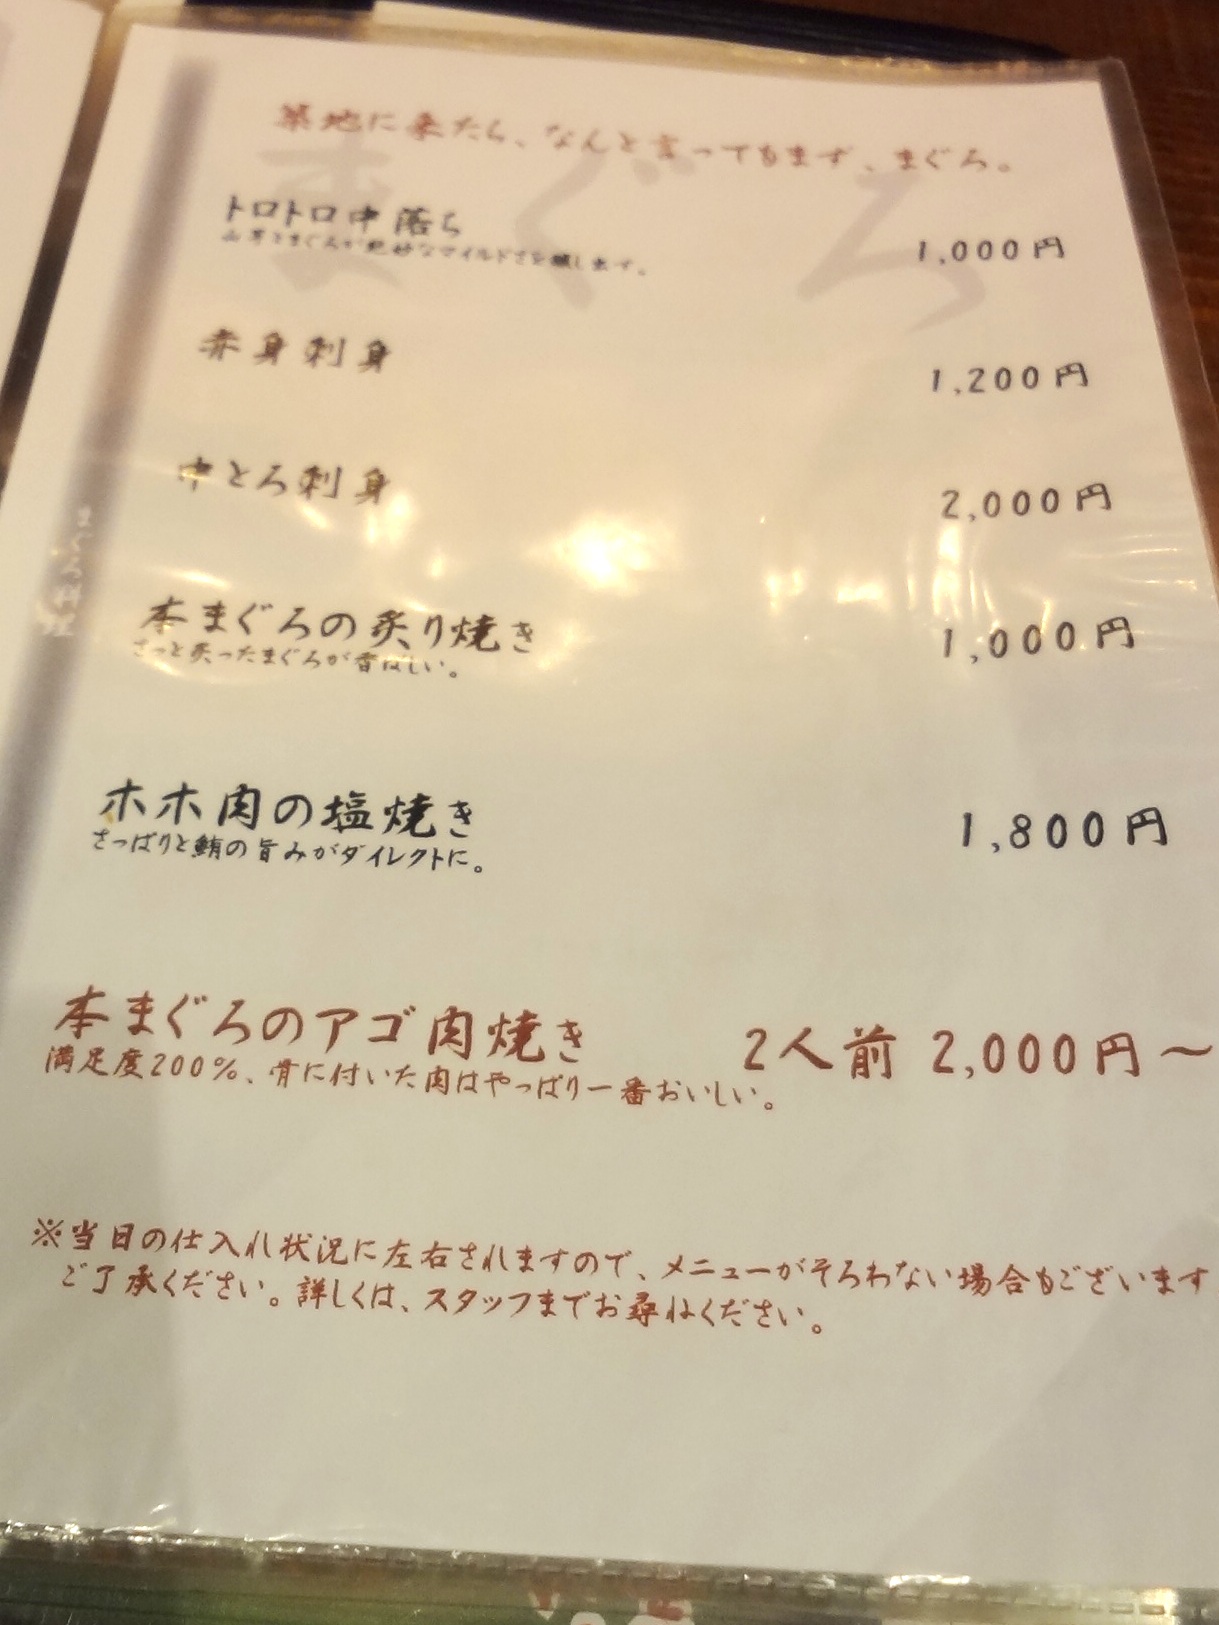 築地に来たら、なんと言ってもまず、まぐろ。
まぐろ
トロトロ中落ち
1,000円
山芋とまぐろが絶妙なマイルドさを醸します。
赤身刺身
1,200円
中とろ刺身
2,000円
まぐろ料理
本まぐろの炙り焼き
1,000円
さっと炙ったまぐろが香ばしい。
ホホ肉の塩焼き
1,800円
さっぱりと鮪の旨みがダイレクトに。
本まぐろのアゴ肉焼き
2人前 2,000円～
満足度200%、骨に付いた肉はやっぱり一番おいしい。
※当日の仕入れ状況に左右されますので、メニューがそろわない場合もございます
ご了承ください。詳しくは、スタッフまでお尋ねください。